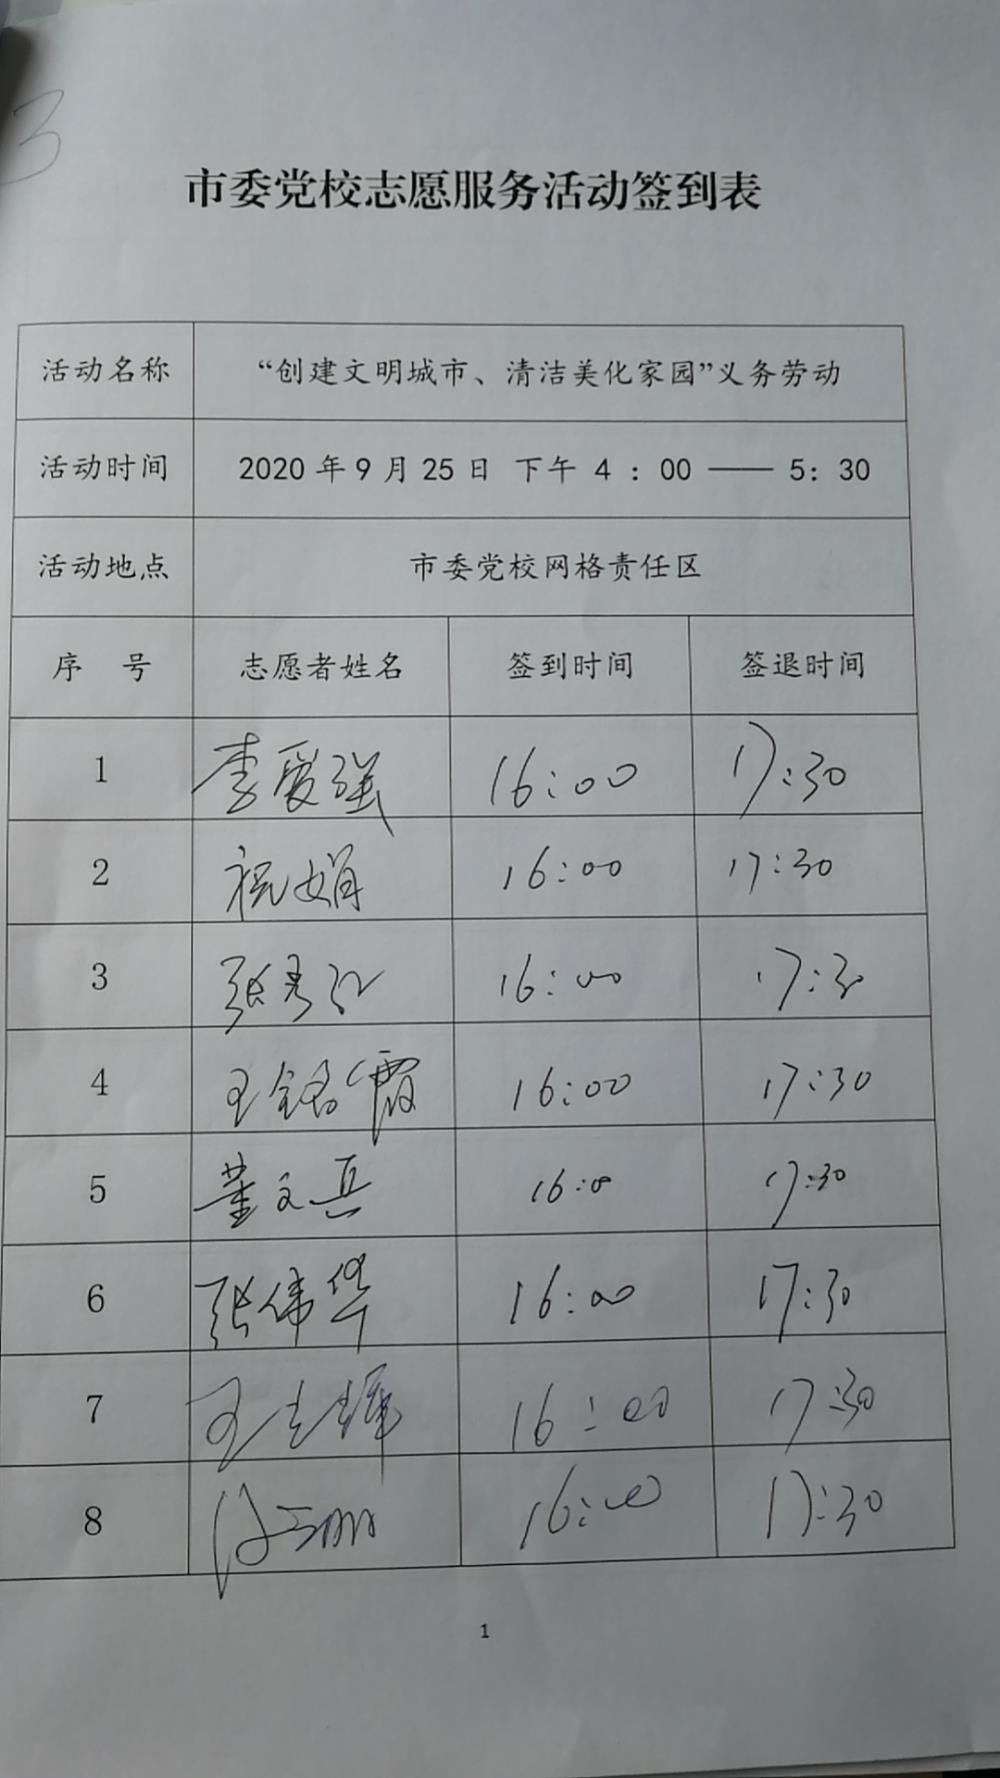 3
市委党校志愿服务活动签到表
活动名称 “创建文明城市、清洁美化家园”义务劳动
活动时间 2020 年 9 月 25 日 下午 4 : 00 —— 5: 30
活动地点 市委党校网格责任区
序 号 志愿者姓名 签到时间 签退时间
1 李爱强 16:00 17:30
2 祝娟 16:00 17:30
3 张秀红 16:00 17:30
4 王铭霞 16:00 17:30
5 董文兵 16:00 17:30
6 张伟华 16:00 17:30
7 王志辉 16:00 17:30
8 16:00 17:30
1